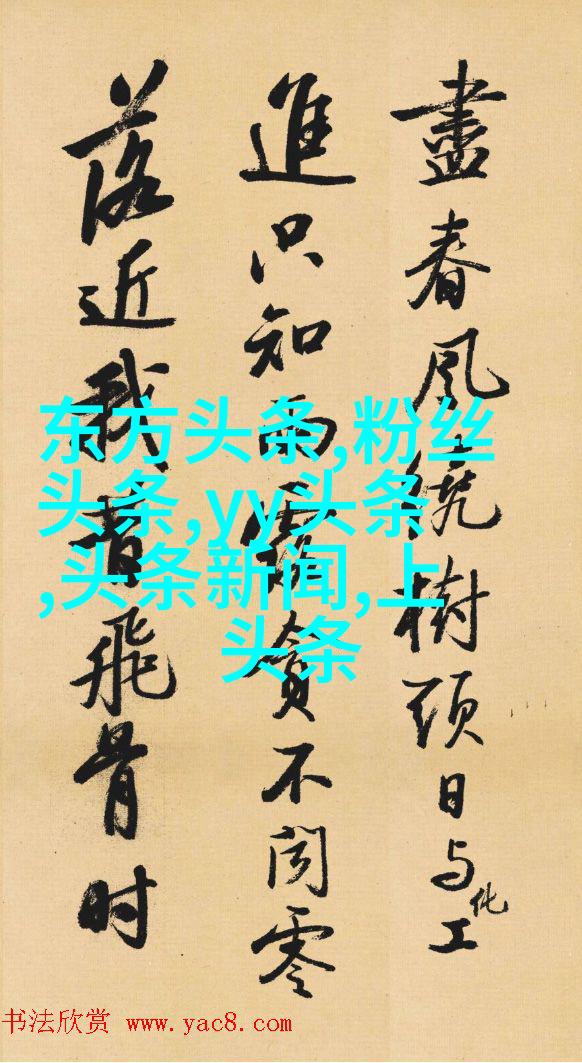 盡春風繞樹頭日与化工
進只知雨露貪不聞零
落近我昔飛骨时
东方头条,粉丝
头条,yy头条
,头条新闻,上
头条
书法欣赏 www.yac8.com